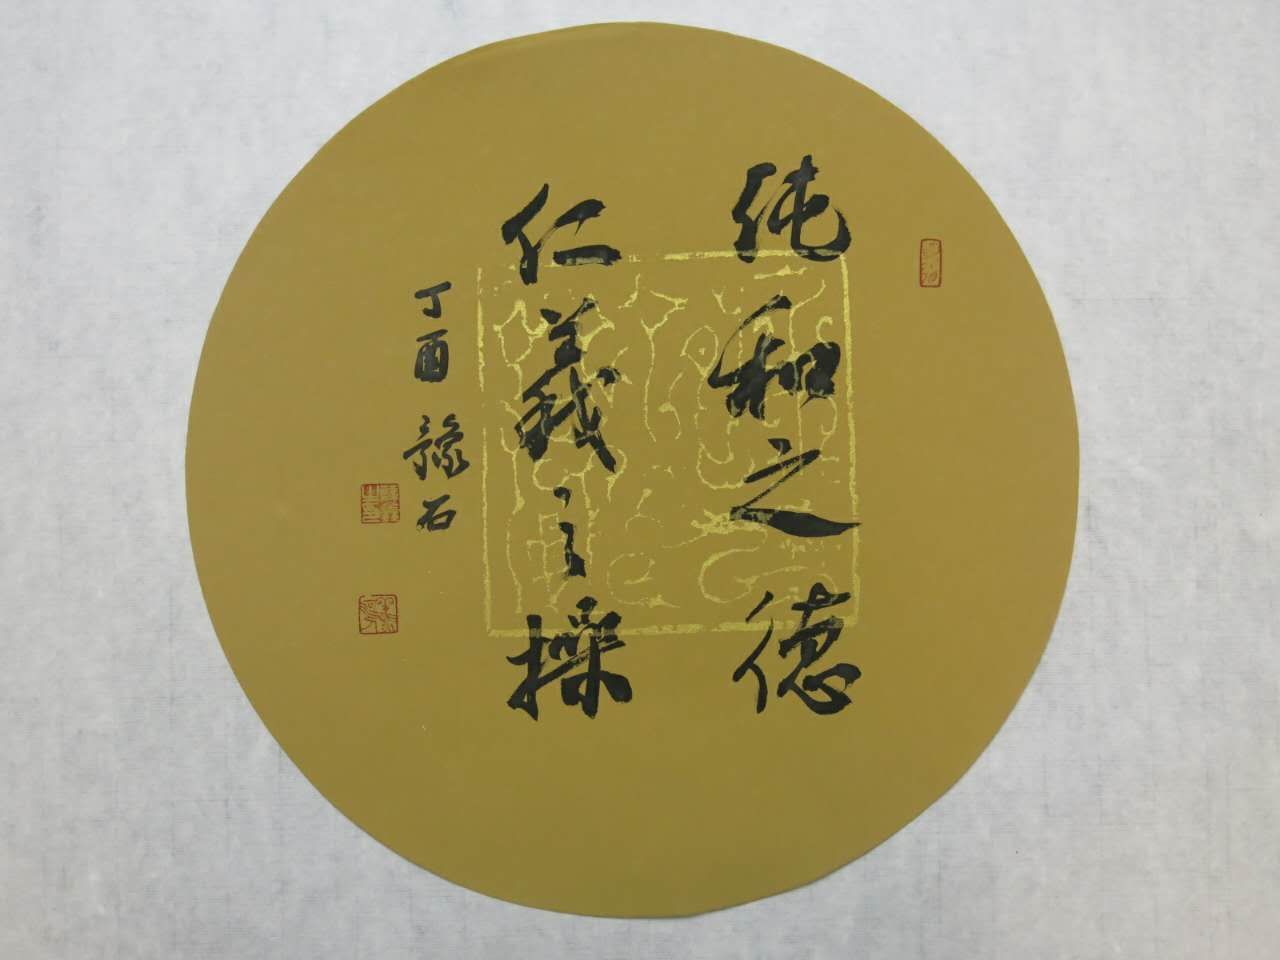 纯和之德
仁義之操
丁酉 豫石